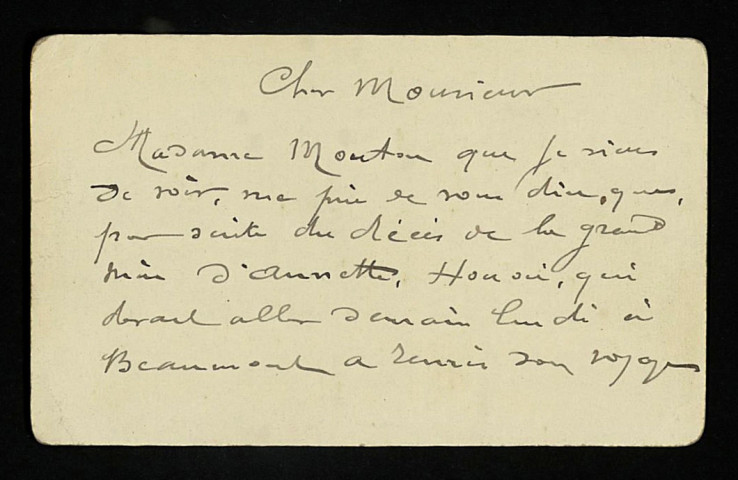 Cher Monsieur
Madame Mouton que je viens
de voir, me prie de vous dire, que,
par suite du décès de la grand
mère d'Annette, Honoré, qui
devait aller demain lundi à
Beaumont a remis son voyage